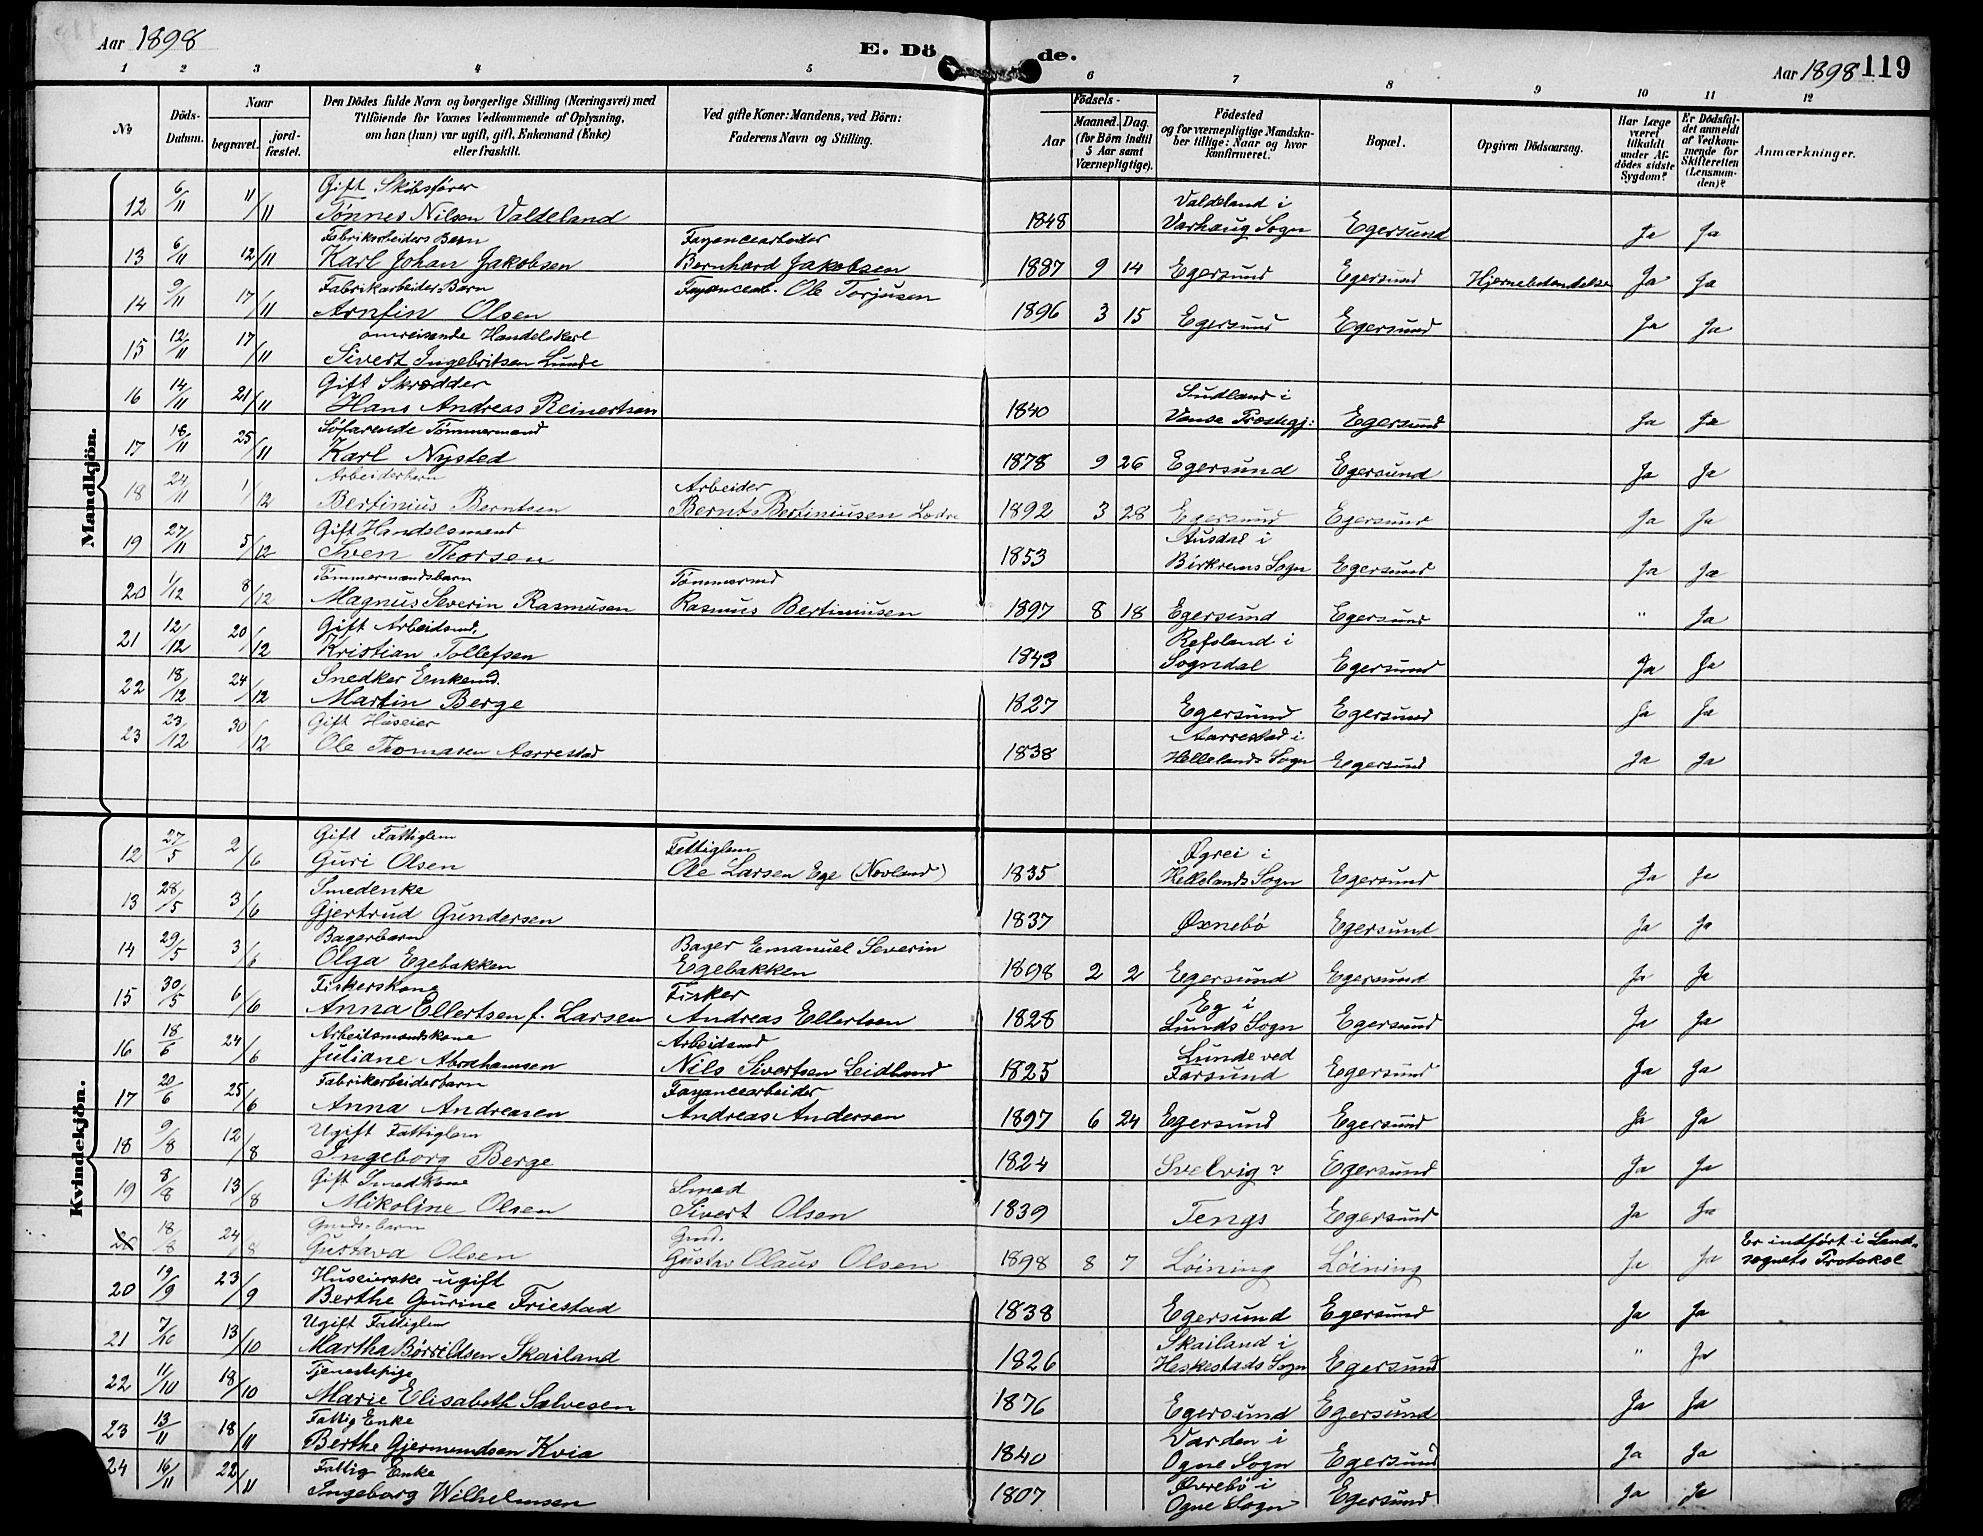 Aar 1898
E. Dö de.
Aar 1898 119
1 2 3 4 5 6 7 8 9 10 11 12
No
Döds-Datum.
Naar
begravet.
jord-fæstet.
Den Dödes fulde Navn og borgerlige Stilling (Næringsvei) med
Tilföiende for Voxnes Vedkommende af Oplysning,
om han (hun) var ugift, gift, Enkemand (Enke)
eller fraskilt.
Ved gifte Koner: Mandens, ved Börn:
Faderens Navn og Stilling.
Födsels-
Aar
Maaned. Dag.
(for Börn indtil
5 Aar samt
Værnepligtige).
Födested
og for værnepligtige Mandska-
ber tillige: Naar og hvor
konfirmeret.
Bopæl.
Opgiven Dödsaarsag.
Har Læge
været
tilkaldt
under Af-
dödes sidste
Sygdom?
Er Dödsfal-
det anmeldt
af Vedkom-
mende for
Skifteretten
(Lensman-
den)?
Anmærkninger.
Mandkjön.
Gift Skibsfører Valdeland i
12 6/11 11/11 Tønnes Nilsen Valdeland 1848 Varhaug Sogn Egersund Ja Ja
Fabrikarbeiders Barn Fayancearbeider
13 6/11 12/11 Karl Johan Jakobsen Bernhard Jakobsen 1887 9 14 Egersund Egersund Hjernebetændelse Ja Ja
Fabrikarbeiders Barn Fayancearb. Ole Torjusen
14 9/11 17/11 Arnfin Olsen 1896 3 15 Egersund Egersund Ja Ja
omreisende Handelskarl
15 12/11 17/11 Sivert Ingebriktsen Lunde
Gift Skrædder Sudland i
16 14/11 21/11 Hans Andreas Reinertsen 1840 Vanse Præstegj: Egersund Ja Ja
Søfarende Tømmermand
17 18/11 25/11 Karl Nysted 1878 9 26 Egersund Egersund Ja Ja
Arbeiderbarn Arbeider
18 24/11 1/12 Bertinius Berntsen Bernt Bertiniusen 1892 3 28 Egersund Egersund Ja Ja
Gift Handelsmand Ausdal i
19 27/11 5/12 Sven Thorsen 1853 Birkrems Sogn Egersund Ja Ja
Tømmermandsbarn Tømmermd
20 1/12 8/12 Magnus Severin Rasmusen Rasmus Bertiniusen 1897 8 18 Egersund Egersund " Ja
Gift Arbeidsmd. Refsland i
21 12/12 20/12 Kristian Tollefsen 1843 Sogndal Egersund Ja Ja
Snedker Enkemd.
22 18/12 24/12 Martin Berge 1827 Egersund Egersund Ja Ja
Gift Huseier Aarrestad i
23 23/12 30/12 Ole Thomasen Aarrestad 1838 Hellelands Sogn Egersund Ja Ja
Kvindekjön.
Gift Fattiglem Fattiglem Øgrei i
12 27/5 2/6 Guri Olsen Ole Larsen Ege (Novland) 1835 Hellelands Sogn Egersund Ja Ja
Smedenke
13 28/5 3/6 Gjertrud Gundersen 1837 Øxnebø Egersund Ja Ja
Bagerbarn Bager Emanuel Severin
14 29/5 3/6 Olga Egebakken Egebakken 1898 2 2 Egersund Egersund Ja Ja
Fiskerskone Fisker Eg i
15 30/5 6/6 Anna Ellertsen f. Larsen Andreas Ellertsen 1828 Lunds Sogn Egersund Ja Ja
Arbeidsmandskone Arbeidsmd Lunde ved
16 18/6 24/6 Juliane Abrahamsen Nils Sivertsen Leidland 1825 Farsund Egersund Ja Ja
Fabrikarbeiderbarn Fayancearbeider
17 20/6 25/6 Anna Andreasen Andreas Andersen 1897 6 24 Egersund Egersund Ja Ja
Ugift Fattiglem
18 9/8 12/8 Ingeborg Berge 1824 Svelvig? Egersund Ja Ja
Gift Smedkone Smed
19 8/8 13/8 Mikoline Olsen Sivert Olsen 1839 Tengs Egersund Ja Ja
Gmds. barn Gmd. Er indført i Land-
20 18/8 24/8 Gustava Olsen Gustav Olaus Olsen 1898 8 7 Løining Løining Ja Ja sognets Protokol
Huseierske ugift
20 19/9 23/9 Berthe Gurine Friestad 1838 Egersund Egersund Ja Ja
Ugift Fattiglem Skailand i
21 7/10 13/10 Martha Børrildsen Skailand 1826 Heskestads Sogn Egersund " Ja
Tjenestepige
22 11/10 18/10 Marie Elisabeth Salvesen 1876 Egersund Egersund Ja Ja
Fattig Enke Varden i
23 13/11 18/11 Berthe Gjermundsen Kvia 1840 Ogne Sogn Egersund Ja Ja
Fattig Enke Øvrebø i
24 16/11 22/11 Ingeborg Wilhelmsen 1807 Ogne Sogn Egersund Ja Ja